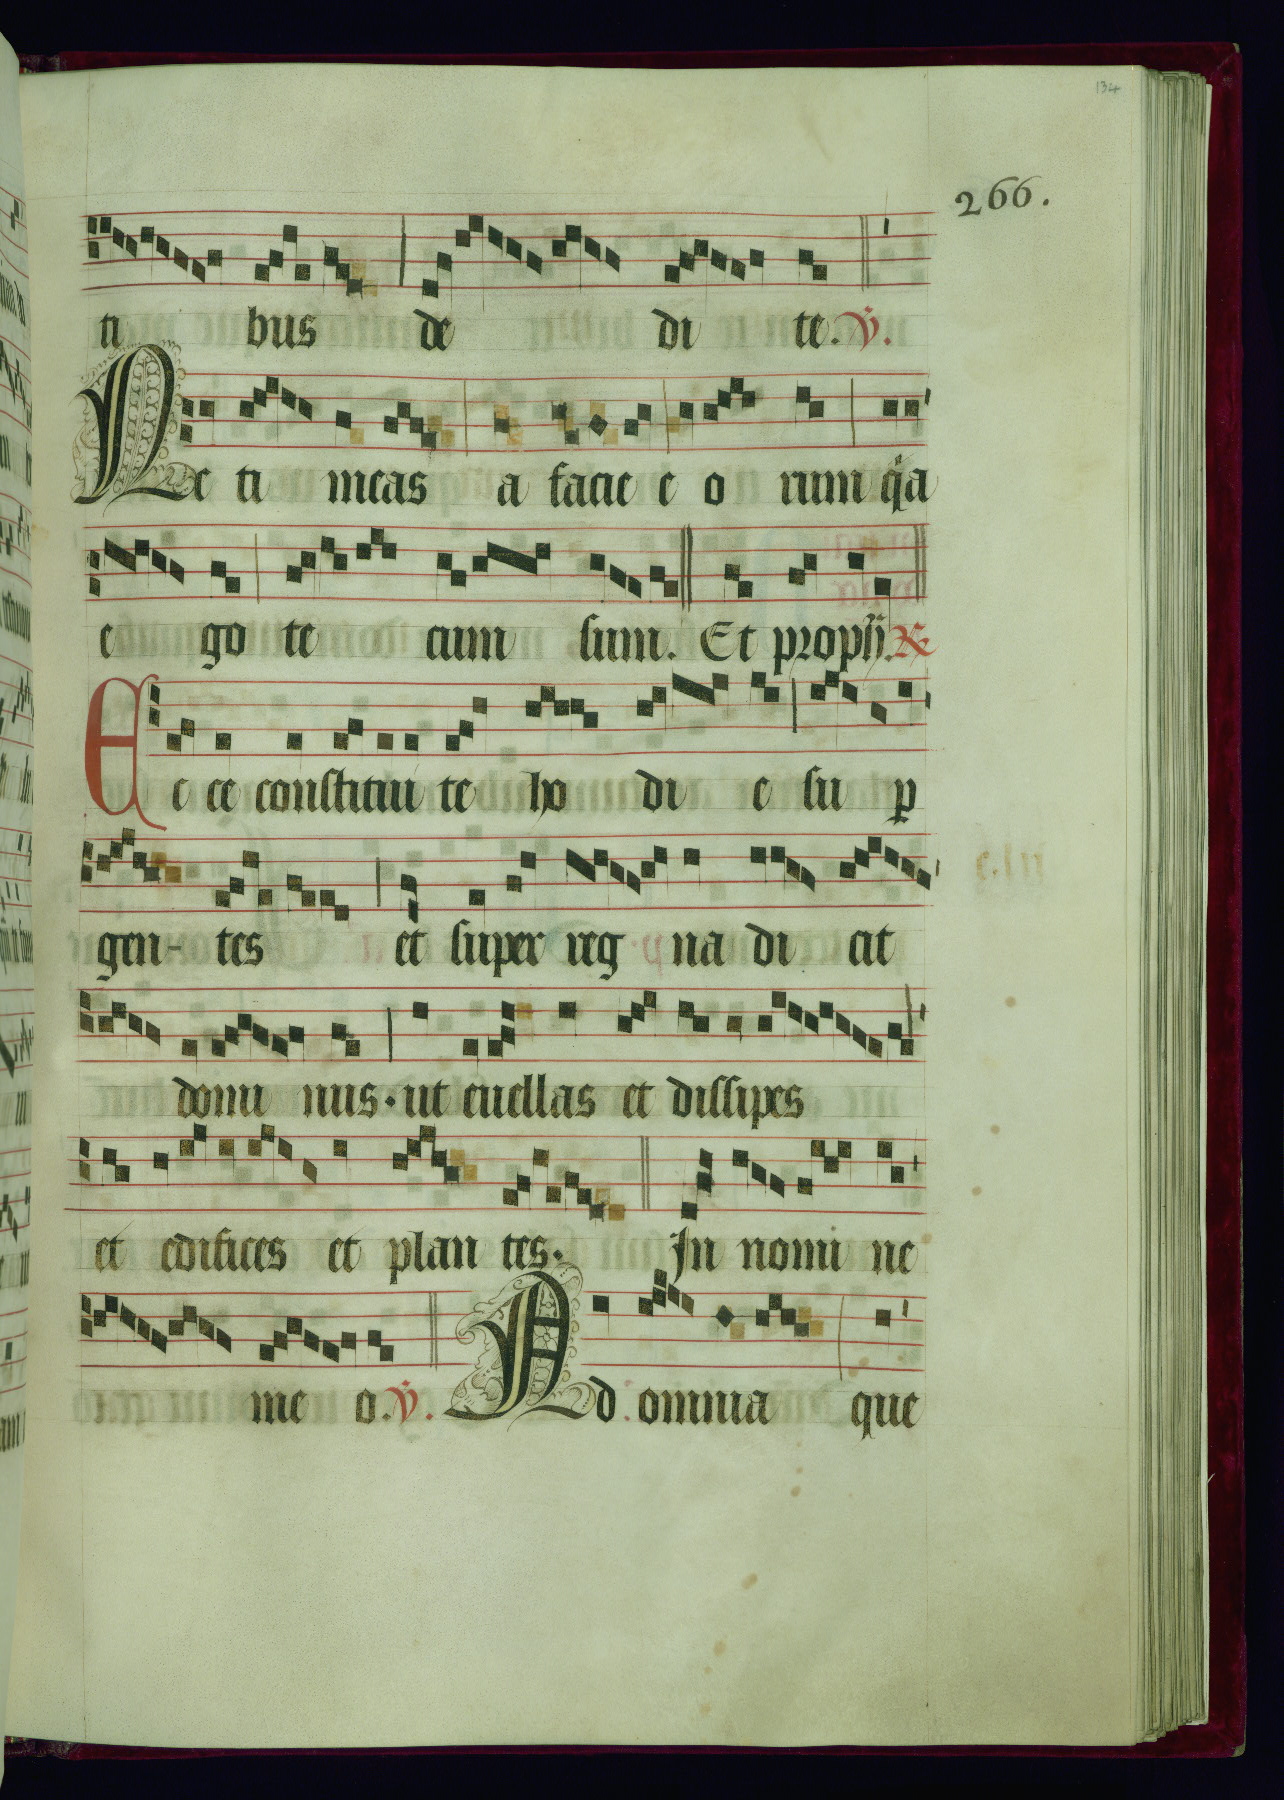 134
266.
ti bus de di te. ℣.
Ne ti meas a facie e o rum q̇a
e go te cum sum. Et proph̄. ℟
Ec ce constitui te ho di e su ꝑ
gen- tes et super reg na di cit
domi nus. ut euellas et dissipes
et edifices et plan tes. In nomi ne
me o. ℣. Ad omnia que